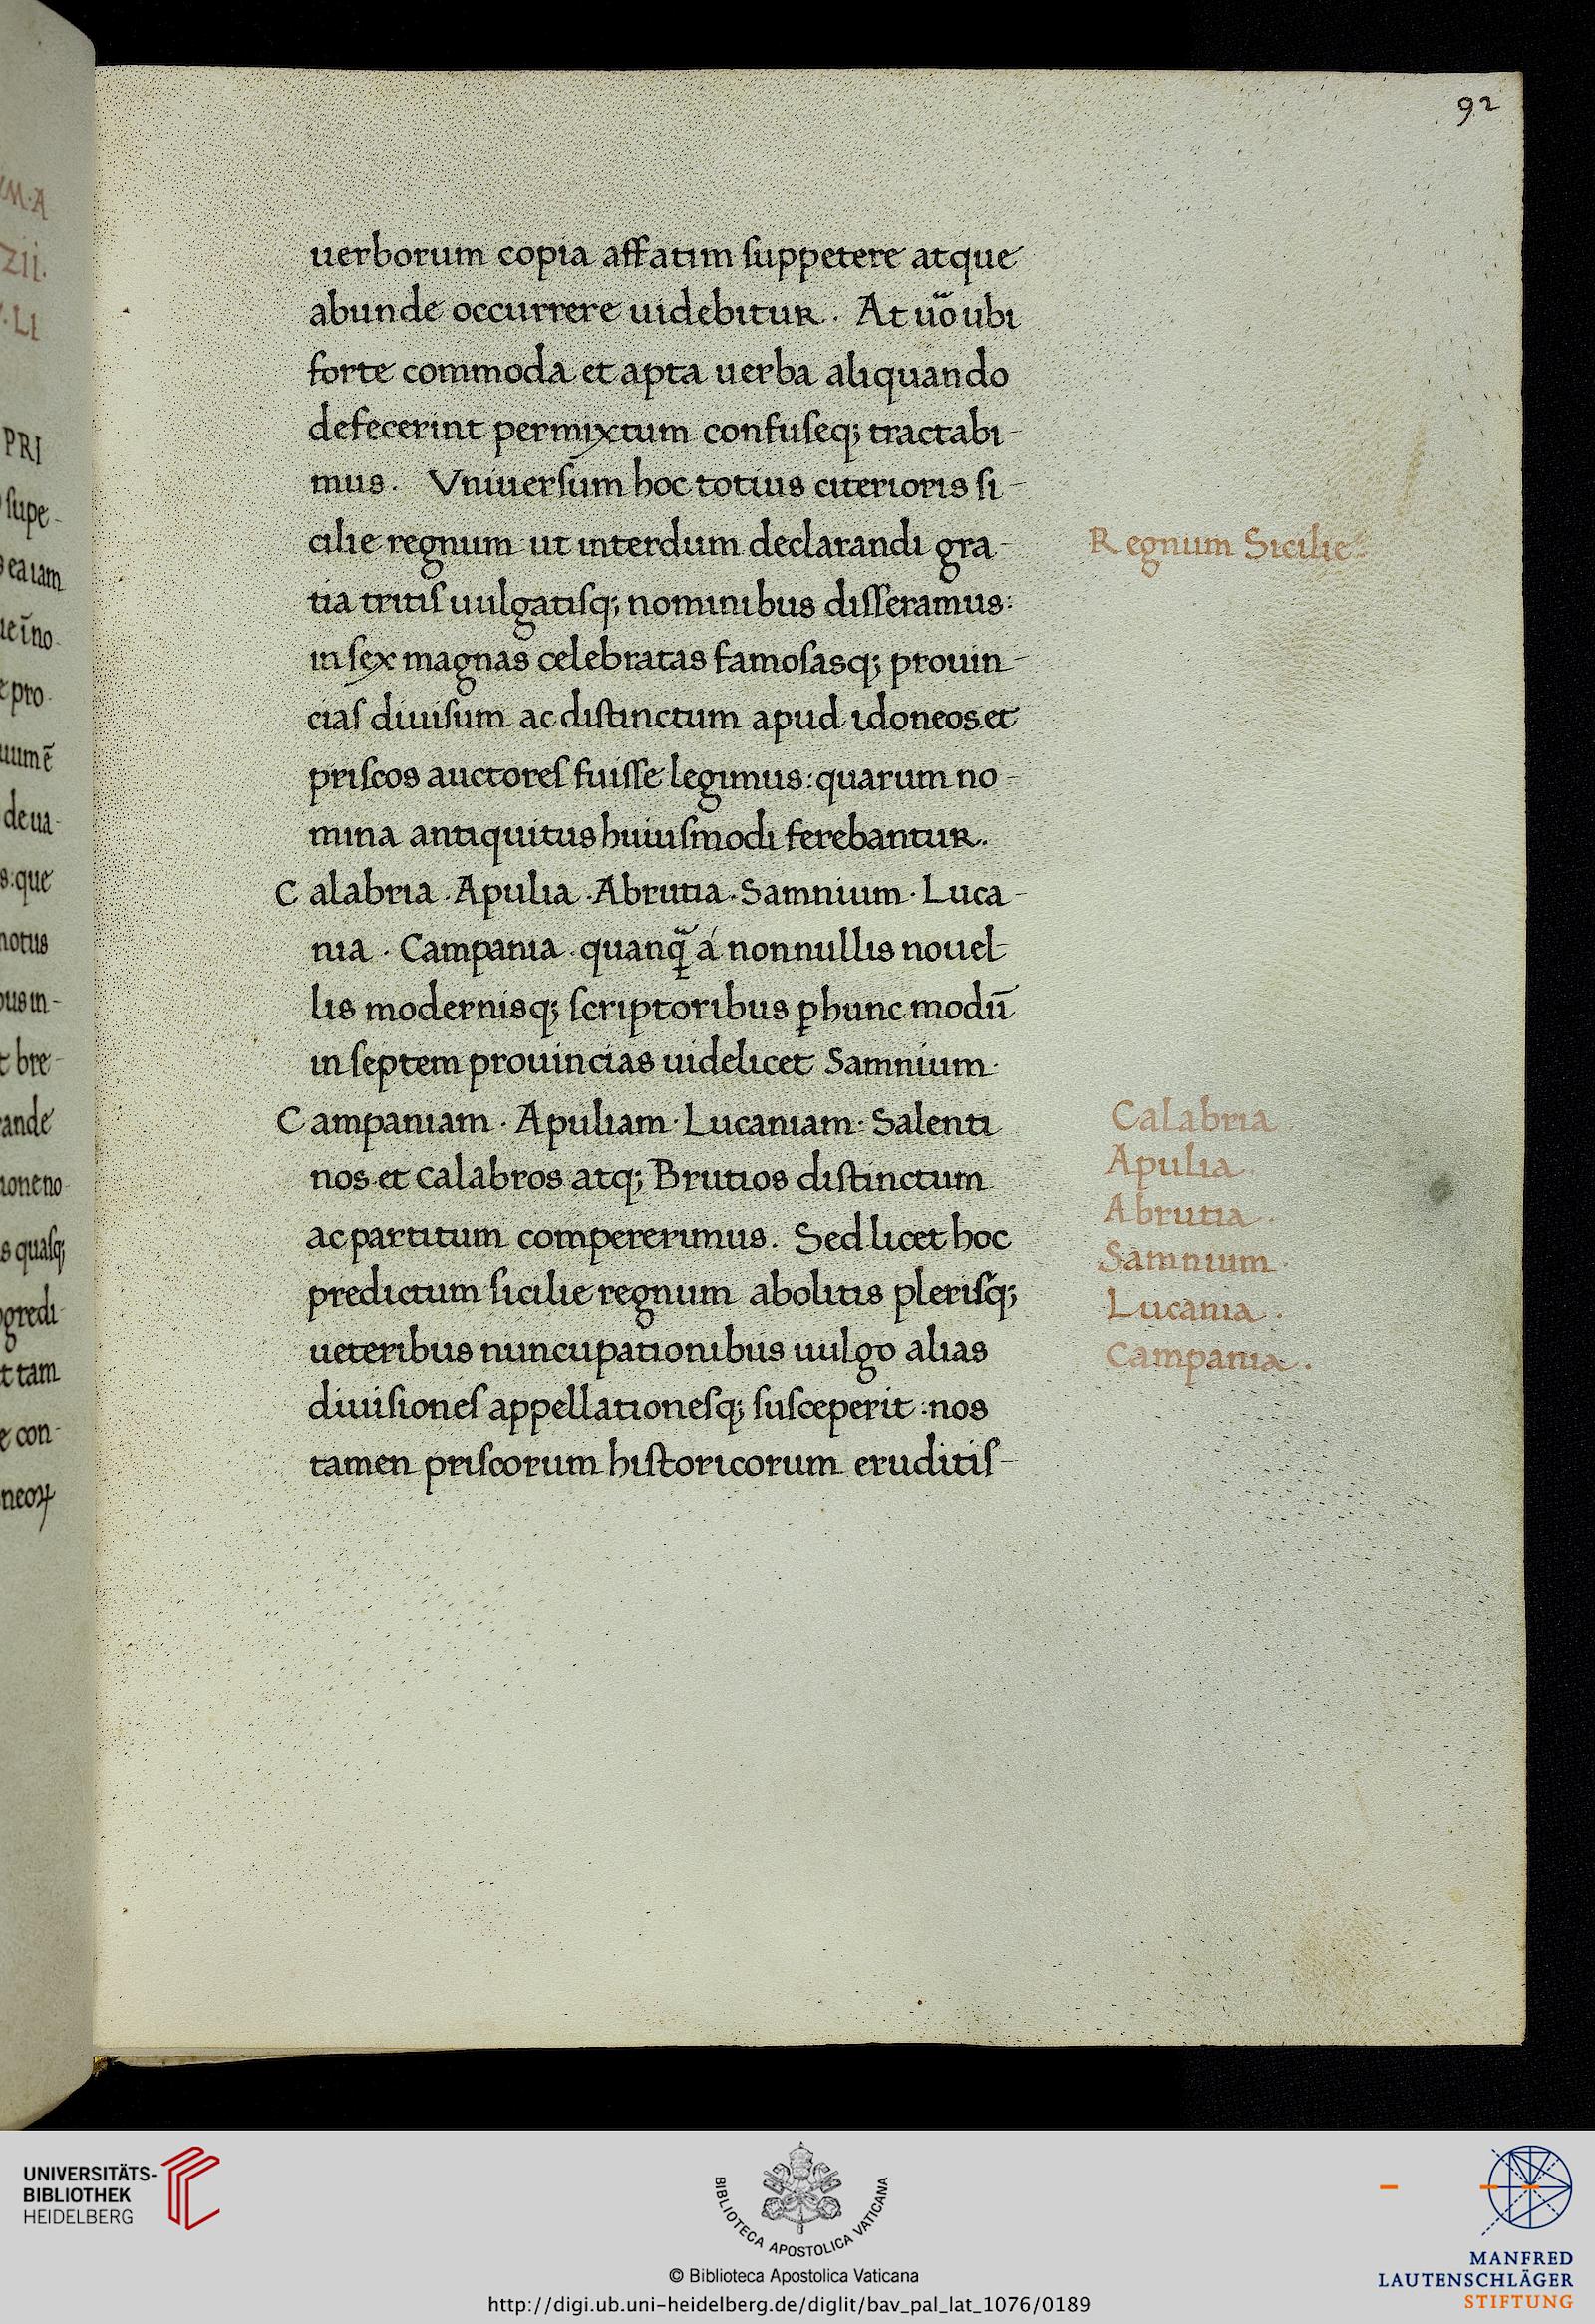 92
uerborum copia affatim suppetere atque
abunde occurrere uidebitur. At uoᷓ ubi
forte commoda et apta uerba aliquando
defecerint permixtum confuseq; tractabi-
mus. Vniuersum hoc totius citerioris si-
cilie regnum ut interdum declarandi gra-
tia tritis uulgatisq; nominibus disseramus:
in sex magnas celebratas famosasq; prouin-
cias diuisum ac distinctum apud idoneos et
priscos auctores fuisse legimus: quarum no-
mina antiquitus huiusmodi ferebantur.
Calabria · Apulia · Abrutia · Samnium · Luca-
nia · Campania · quanꝗᷓ á nonnullis nouel-
lis modernisq; scriptoribus ꝑ hunc modū
in septem prouincias uidelicet Samnium ·
Campaniam · Apuliam · Lucaniam · Salenti
nos et calabros atq; Brutios distinctum
ac partitum compererimus. Sed licet hoc
predictum sicilie regnum abolitis plerisq;
ueteribus nuncupationibus uulgo alias
diuisiones appellationesq; susceperit : nos
tamen priscorum historicorum eruditis-
Regnum Sicilie
Calabria
Apulia
Abrutia ·
Samnium ·
Lucania ·
Campania ·
M·A
ZII·
·LI
PRI
supe-
ea iam
pro·
de ua-
que
notus
bre-
con-
tam
UNIVERSITÄTS-
BIBLIOTHEK
HEIDELBERG
BIBLIOTECA APOSTOLICA VATICANA
© Biblioteca Apostolica Vaticana
http://digi.ub.uni-heidelberg.de/diglit/bav_pal_lat_1076/0189
MANFRED
LAUTENSCHLÄGER
STIFTUNG